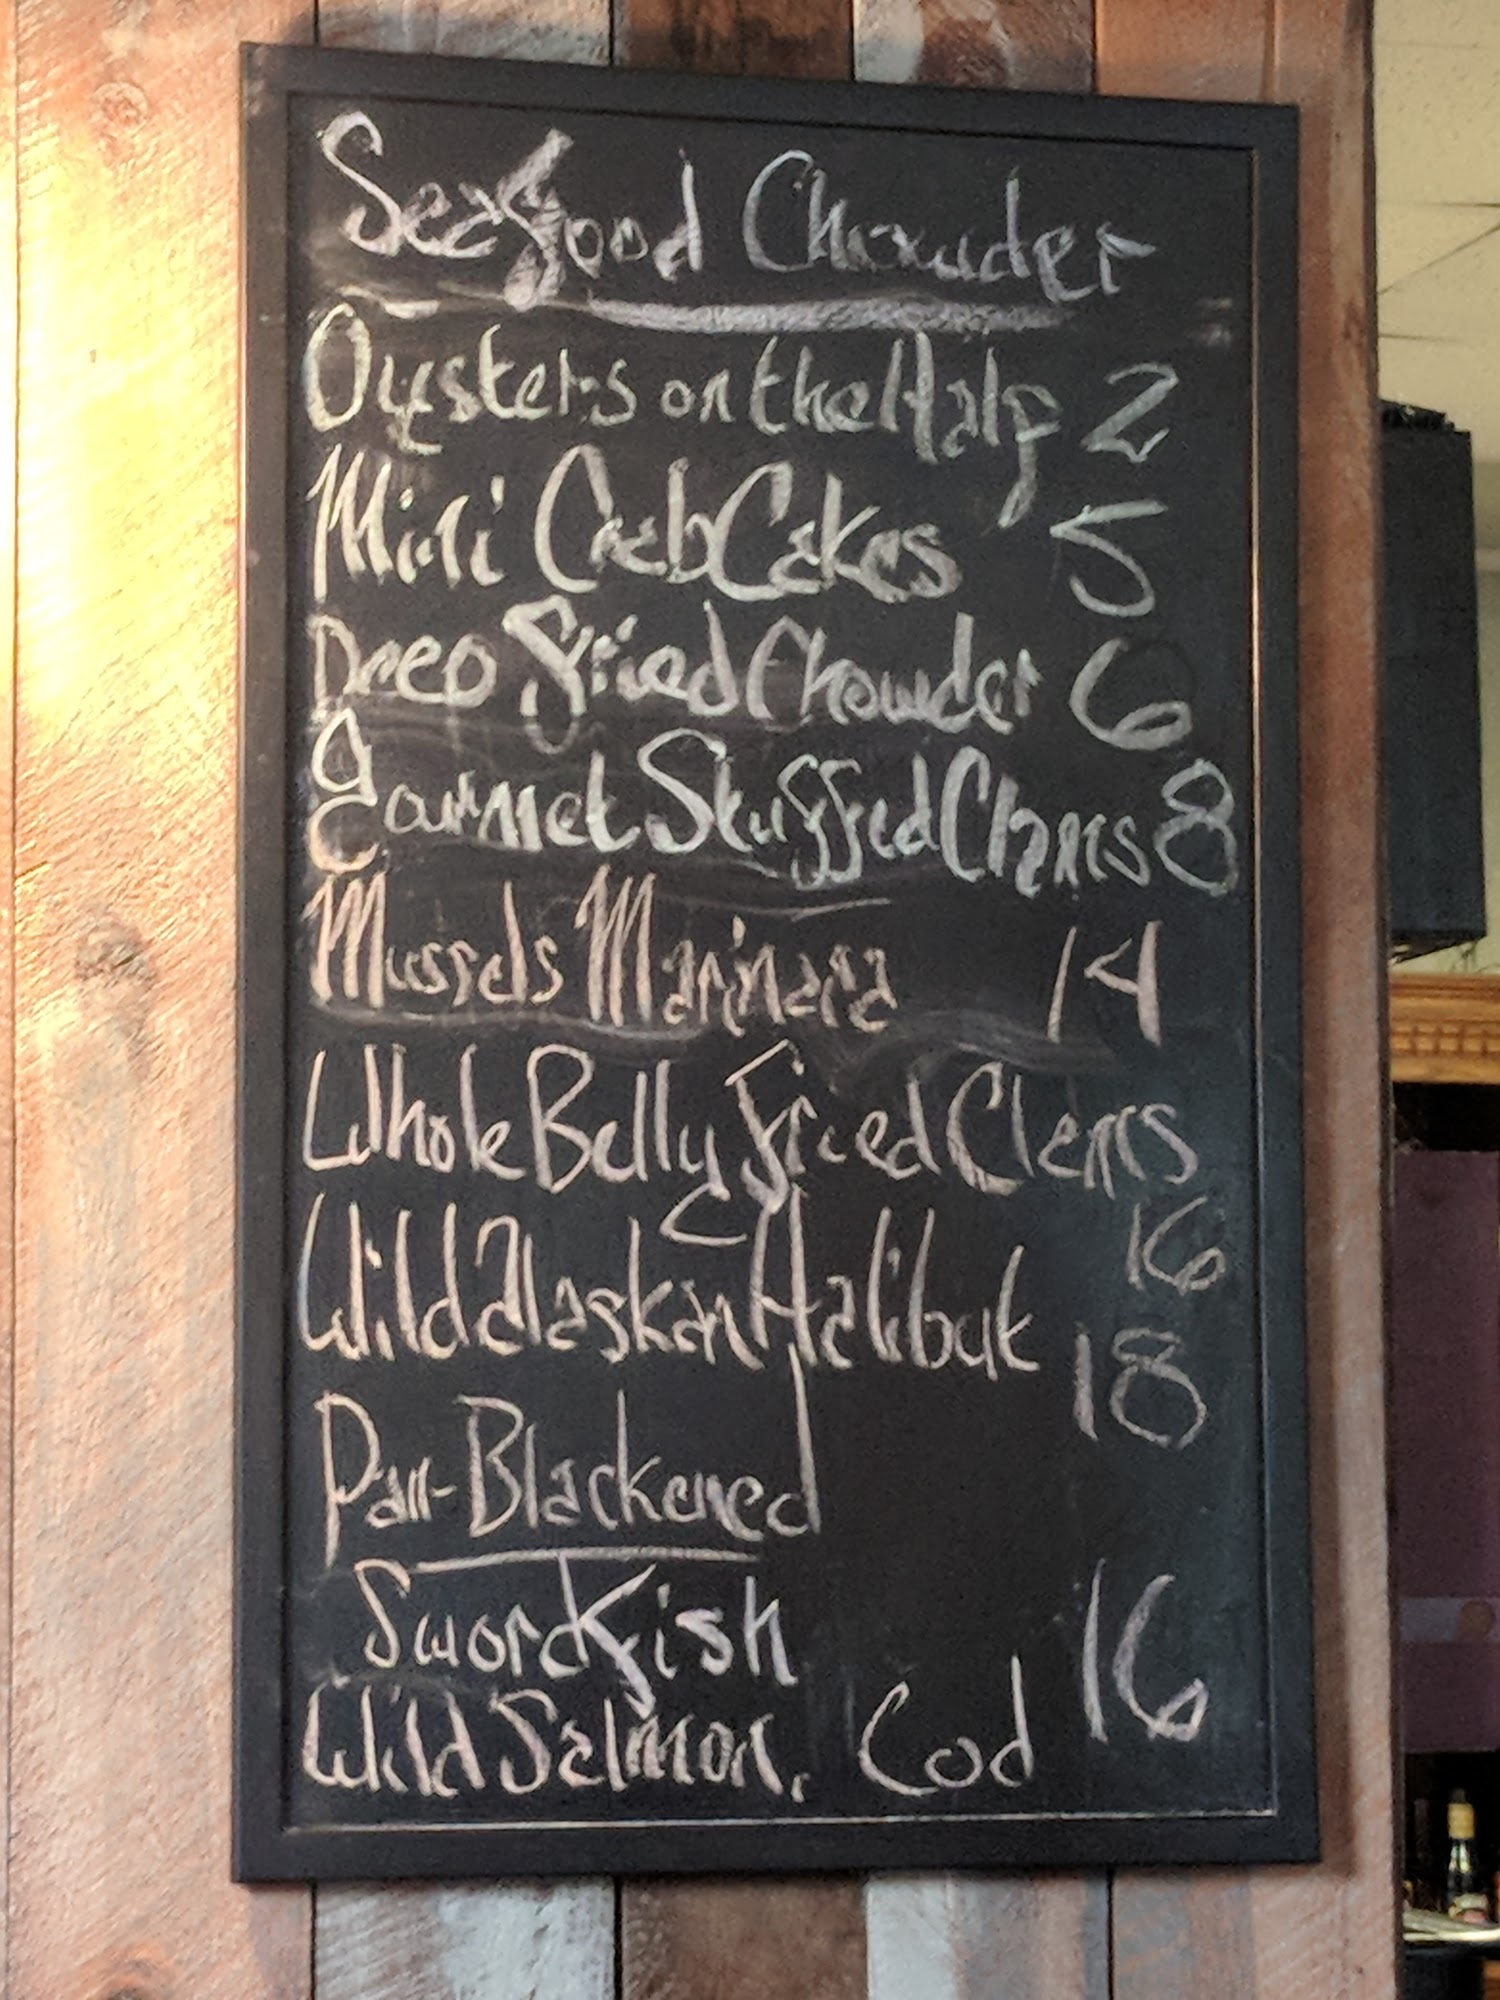 Seafood Chowder
Oysters on the Half 2
Mini Crab Cakes 5
Deep Fried Chowder 6
Gourmet Stuffed Clams 8
Mussels Marinara 14
Whole Belly Fried Clams
16
Wild Alaskan Halibut
18
Pan-Blackened
Swordfish 16
Wild Salmon, Cod